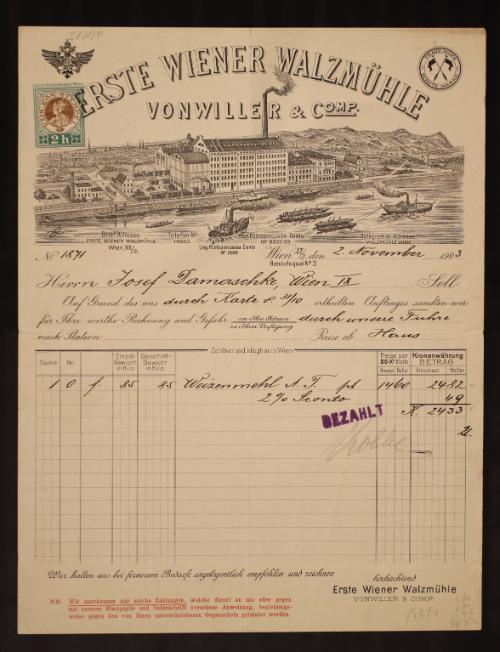 ERSTE WIENER WALZMÜHLE
VONWILLER & COMP.
2 h
Brief-Adresse
ERSTE WIENER WALZMÜHLE
Wien, XX/2.
Telefon No
Ung. Postsparcassa-Conto
Telegramm-Adresse
WALZMÜHLE WIEN
No 1871
Wien 2. November 1903
Handelsquai No 3
Herrn Josef Damaschke, Wien IX Soll
Auf Grund des uns durch Karte d. 31/10 ertheilten Auftrages sandten wir
für Ihre werthe Rechnung und Gefahr an Ihre Adresse durch unsere Fuhre
zu Ihrer Verfügung
nach Station Preise ab Haus
Zahlbar und klagbar in Wien
Säcke Nr. Einzel-Gewicht in Kilo Gesammt-Gewicht in Kilo Preise per 50 Ko Netto Kronen Heller Kronenwährung BETRAG Kronen Heller
1 0 f. 85 85 Weizenmehl N. T. pt 1460 24 82
2% Sconto 49
K. 24 33
BEZAHLT
Wir halten uns bei fernerem Bedarfe angelegentlich empfohlen und zeichnen
hochachtend
Erste Wiener Walzmühle
VONWILLER & COMP.
NB. Wir anerkennen nur solche Zahlungen, welche direct an uns oder gegen
mit unserer Stampiglie und Unterschrift versehene Anweisung, beziehungs-
weise gegen den von Ihnen unterschriebenen Gegenschein geleistet werden.